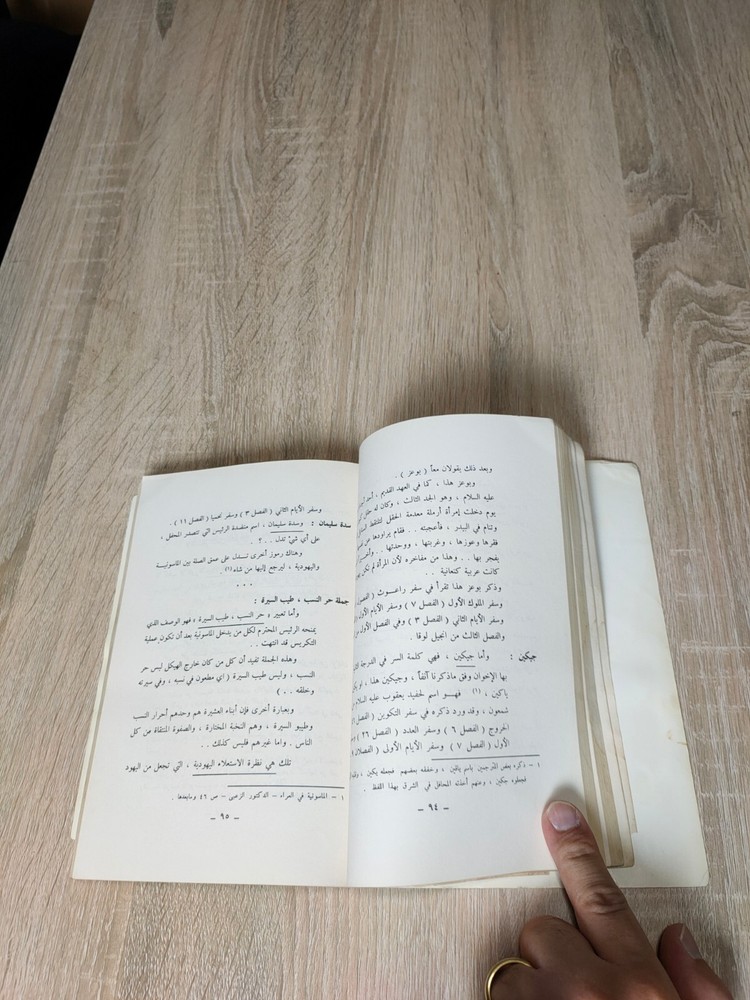 وبعد ذلك يقولان معاً ( بوعز ) .
وبوعز هذا ، كما في العهد القديم ، أحد
عليه السلام ، وهو الجد الثالث ، وكان له حقل
يوم دخلت إمرأة أرملة معدمة الحقل لتلتقط
وتنام في البيدر ، فأعجبته . . فقام يراودها عن
فقرها وعوزها ، وغربتها ، ووحدتها . .
يفجر بها . . وهذا من مفاخره لأن المرأة لم تكن
كانت عربية كنعانية .
وذكر بوعز هذا تقرأ في سفر راعسوث
وسفر الملوك الأول ( الفصل ٧ ) وسفر الأيام
وسفر الأيام الثاني ( الفصل ٣ ) وفي الفصل الأول
والفصل الثالث من انجيل لوقا .
جيكين : وأما جيكين ، فهي كلمة السر في الدرجة
بها الإخوان وفق ماذكرنا آنفاً ، وجيكين هذا ،
ياكين ، (١) فهسو اسم لحفيد يعقوب عليه السلام
شمعون ، وقد ورد ذكره في سفر التكوين ( الفصل
الخروج ( الفصل ٦ ) وسفر العدد ( الفصل ٢٦ )
الأول ( الفصل ٧ ) وسفر الأيام الأولى ( الفصلان
١ – ذكره بعض المترجمين باسم ياقين ، وخففه بعضهم فجعله يكين ،
فجعلوه جكين ، وعنهم أخذته المحافل في الشرق بهذا اللفظ .
– ٩٤ –
وسفر الأيام الثاني ( الفصل ٣ ) وسفر اشعيا ( الفصل ١١ ) .
سدة سليمان : وسدة سليمان ، اسم منضدة الرئيس التي تتصدر المحفل ،
على أي شيْ تدل . . ؟ .
وهناك رموز أخرى تستدل على عمق الصلة بين الماسونيسة
واليهودية ، ليرجع إليها من شاء(١) .
• • •
جملة حر النسب ، طيب السيرة :
وأما تعبير « حر النسب ، طيب السيرة » فهو الوصف الذي
يمنحه الرئيس المحترم لكل من يدخل الماسونية بعد أن تكون عملية
التكريس قد انتهت . .
وهذه الجملة تفيد أن كل من كان خارج الهيكل ليس حر
النسب ، وليس طيب السيرة ( اي مطعون في نسبه ، وفي سيرته
وخلقه . . )
وبعبارة أخرى فإن أبناء العشيرة هم وحدهم أحرار النسب
وطيبو السيرة ، وهم النخبة المختارة ، والصفوة المنتقاة من كل
الناس . واما غيرهم فليس كذلك . .
تلك هي نظرة الاستعلاء اليهودية ، التي تجعل من اليهود
١ – الماسونية في العراء – الدكتور الزعبي – ص ٤٦ ومابعدها .
– ٩٥ –